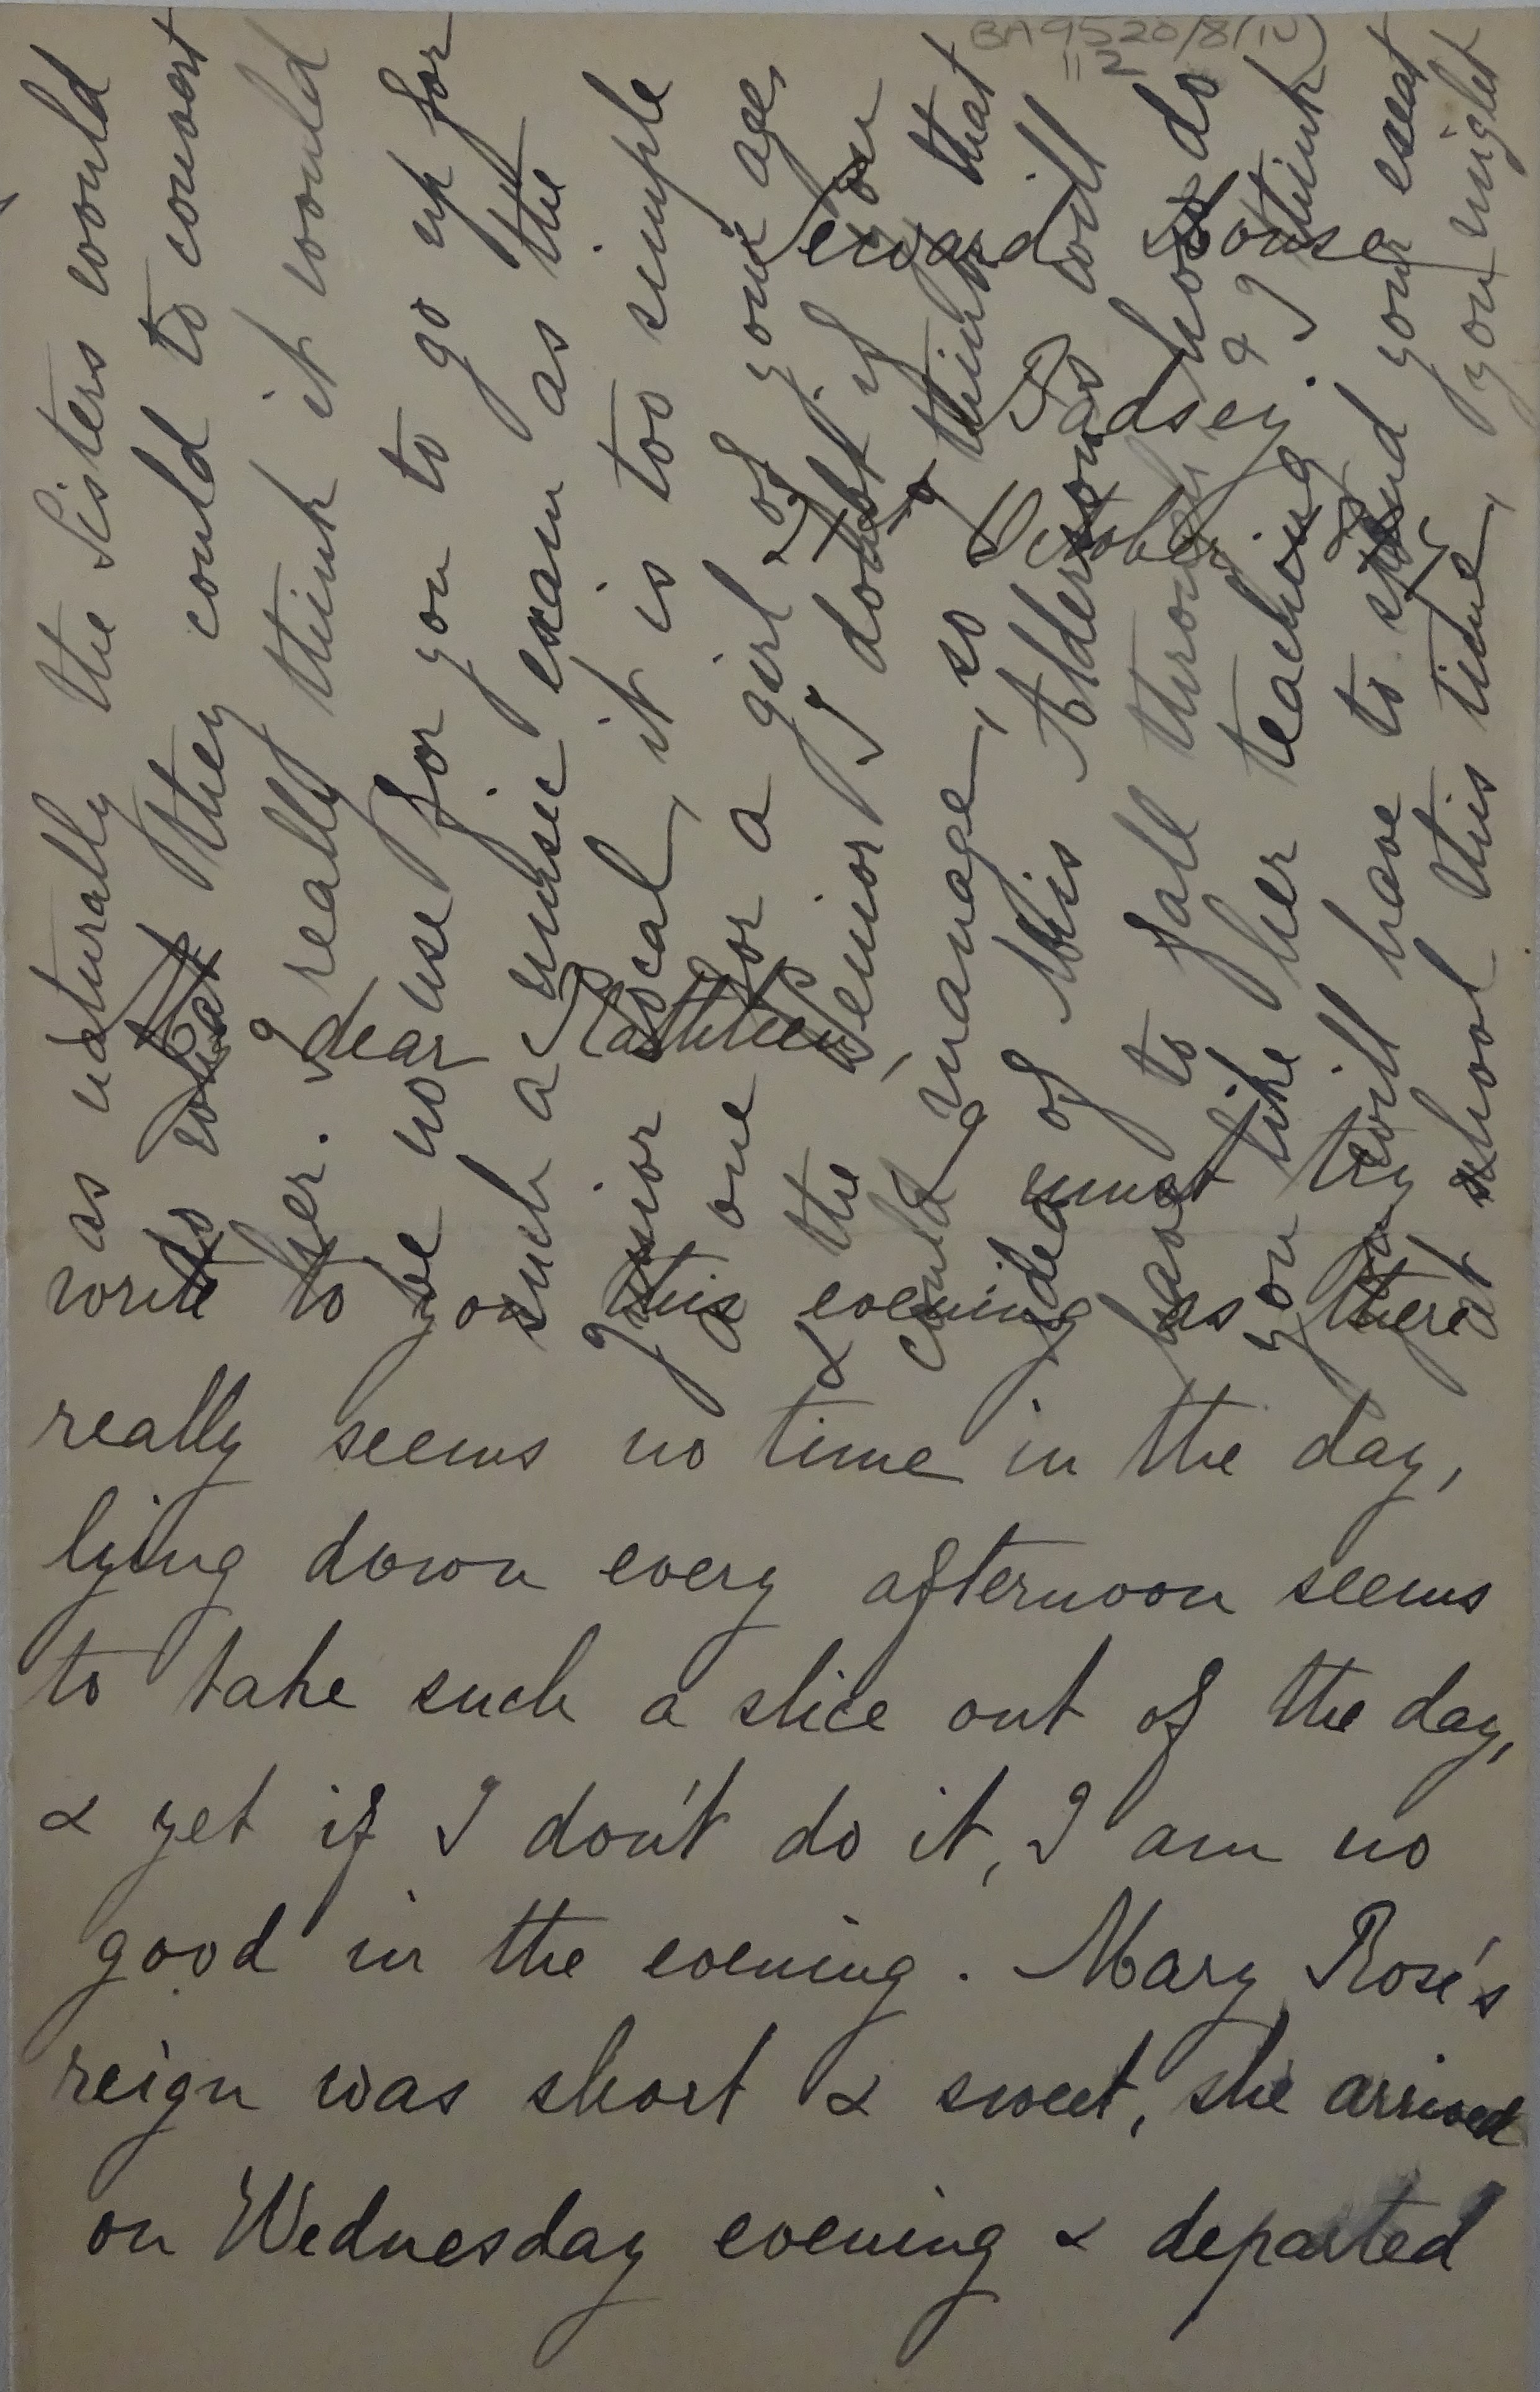 BA9520/8(iv)
"2
Seward House
Badsey
October
dear Kathleen,
I must try
write to you this evening as there
really seems no time in the day,
lying down every afternoon seems
to take such a slice out of the day,
& yet if I don't do it, I am no
good in the evening. Mary Rose's
reign was short & sweet, she arrived
on Wednesday evening & departed
as naturally the Sisters would
do what they could to convert
her. I really think it would
be no use for you to go up for
such a music exam as the
Junior local, it is too simple
a one for a girl of your age,
& the Senior I doubt if you
could manage, so think that
idea of Miss Alderson's will
have to fall through & I think
you like her teaching.
you will have to spend your exeat
at school this time, you might